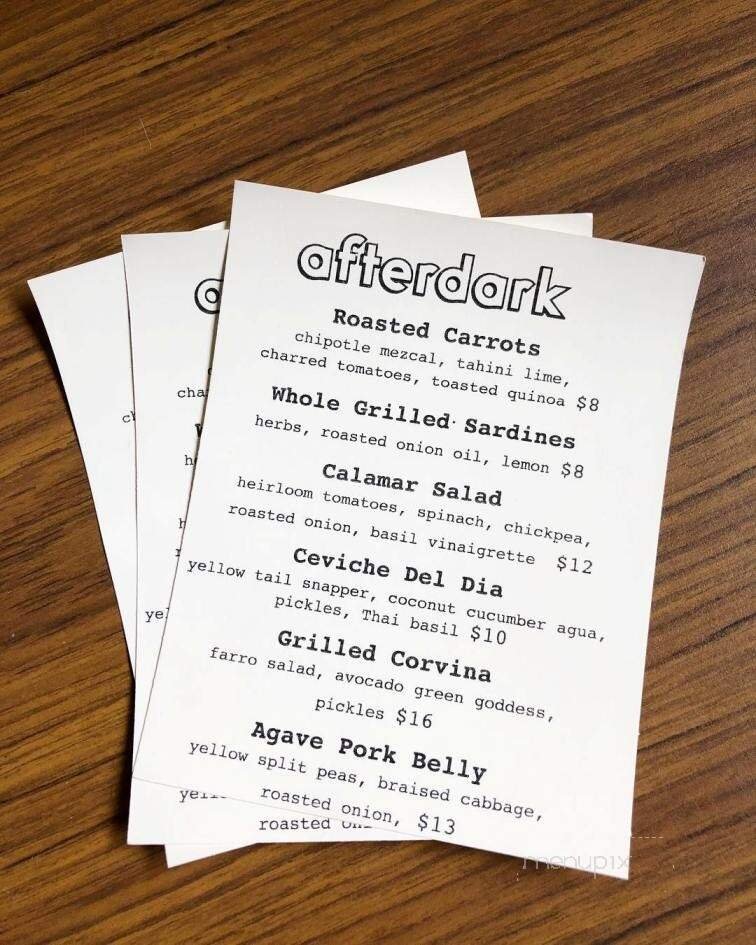 afterdark
Roasted Carrots
chipotle mezcal, tahini lime,
charred tomatoes, toasted quinoa $8
Whole Grilled Sardines
herbs, roasted onion oil, lemon $8
Calamar Salad
heirloom tomatoes, spinach, chickpea,
roasted onion, basil vinaigrette $12
Ceviche Del Dia
yellow tail snapper, coconut cucumber agua,
pickles, Thai basil $10
Grilled Corvina
farro salad, avocado green goddess,
pickles $16
Agave Pork Belly
yellow split peas, braised cabbage,
roasted onion, $13
roasted
menupix